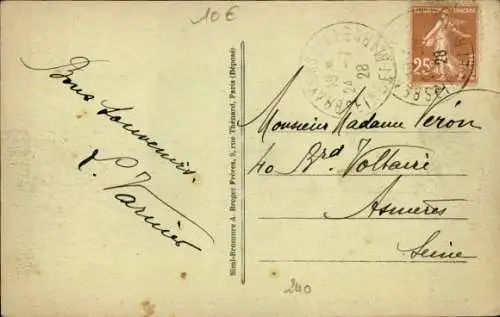 10€
Bons souvenirs.
L. Varnier
Simi-Bromure A. Breger Frères, 9, rue Thénard, Paris (Déposé)
24 -7
28
28
25c
Monsieur Madame Véron
40 Brd Voltaire
Asnières
Seine
240